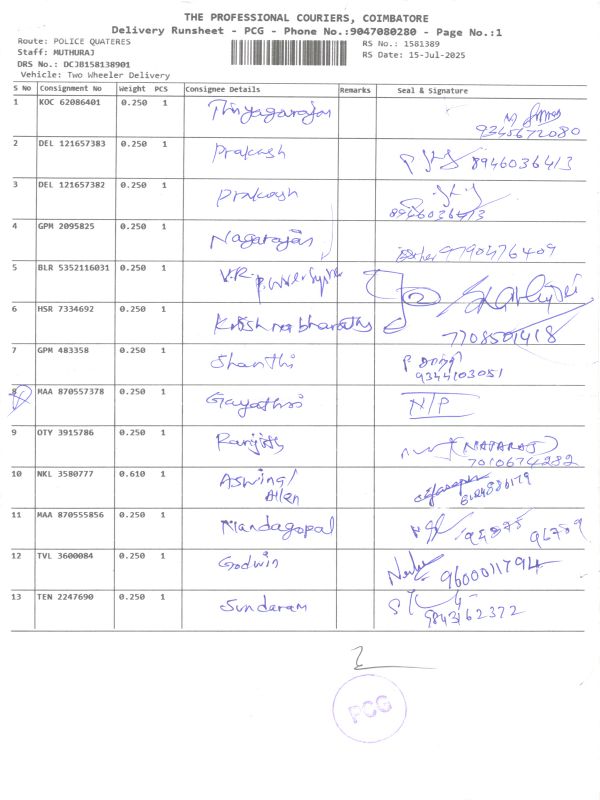 THE PROFESSIONAL COURIERS, COIMBATORE
Delivery Runsheet - PCG - Phone No.:9047080280 - Page No.:1
Route: POLICE QUATERES
RS No.: 1581389
Staff: MUTHURAJ
RS Date: 15-Jul-2025
DRS No.: DCJ8158138901
Vehicle: Two Wheeler Delivery
S No Consignment No Weight PCS Consignee Details Remarks Seal & Signature
1 KOC 62086401 0.250 1 Thiyagarajan
9345672080
2 DEL 121657383 0.250 1 Prakash 8946036413
3 DEL 121657382 0.250 1 Prakash
8946036413
4 GPM 2095825 0.250 1 Nagarajan 9790476409
5 BLR 5352116031 0.250 1 V.R. Power System
6 HSR 7334692 0.250 1 Krishnabharathy
7708501418
7 GPM 483358 0.250 1 Shanthi
9344103051
8 MAA 870557378 0.250 1 Gayathri N/P
9 OTY 3915786 0.250 1 Ranjith (NATARAJ)
7010674282
10 NKL 3580777 0.610 1 Aswing/
Allen
11 MAA 870555856 0.250 1 Nandagopal
12 TVL 3600084 0.250 1 Godwin 9600011794
13 TEN 2247690 0.250 1 Sundaram
9843162372
PCG